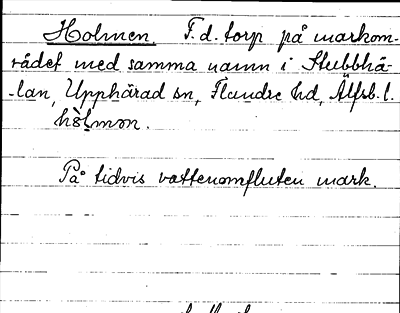 Holmen. F.d. torp på markom-
rådet med samma namn i Stubbhä-
-lan, Upphärad sn, Flundre hd, Älfsb. l.
hòlmɔn.
På tidvis vattenomfluten mark.